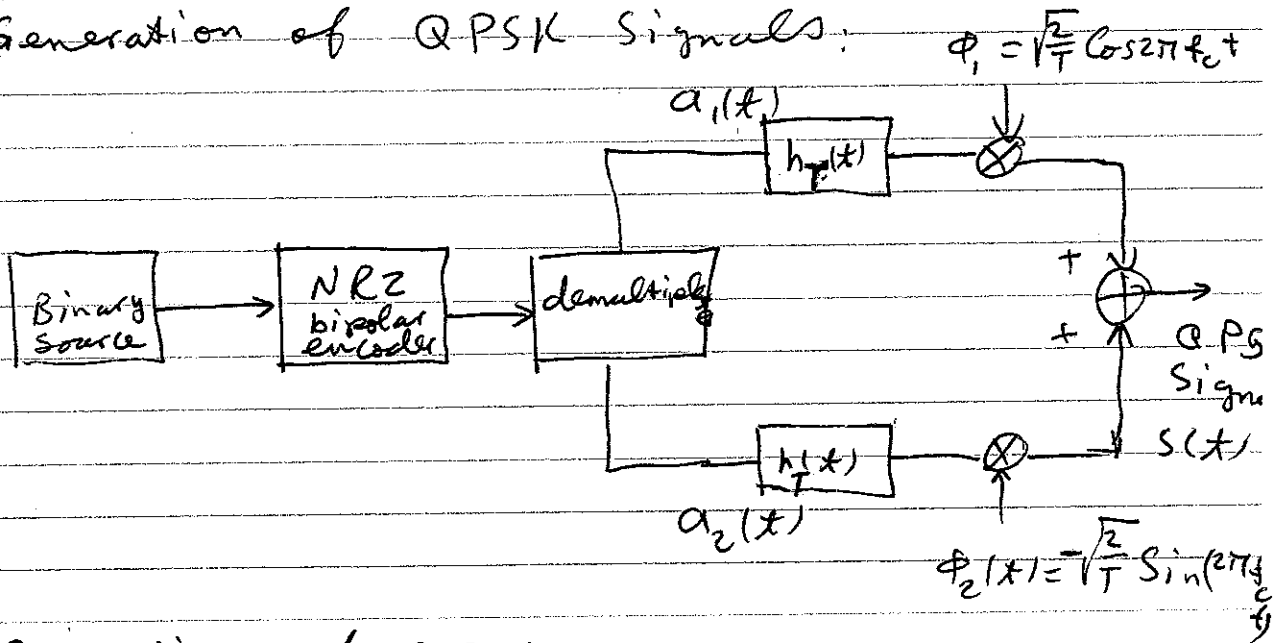 Generation of QPSK Signals:
Φ₁ = √(2/T) Cos2πf_c t
a₁(t)
h_T(t)
Binary
Source
NRZ
bipolar
encoder
demultiplexe
+
+
QPS
Sign
S(t)
h_T(t)
a₂(t)
Φ₂(t) = -√(2/T) Sin(2πf_c t)